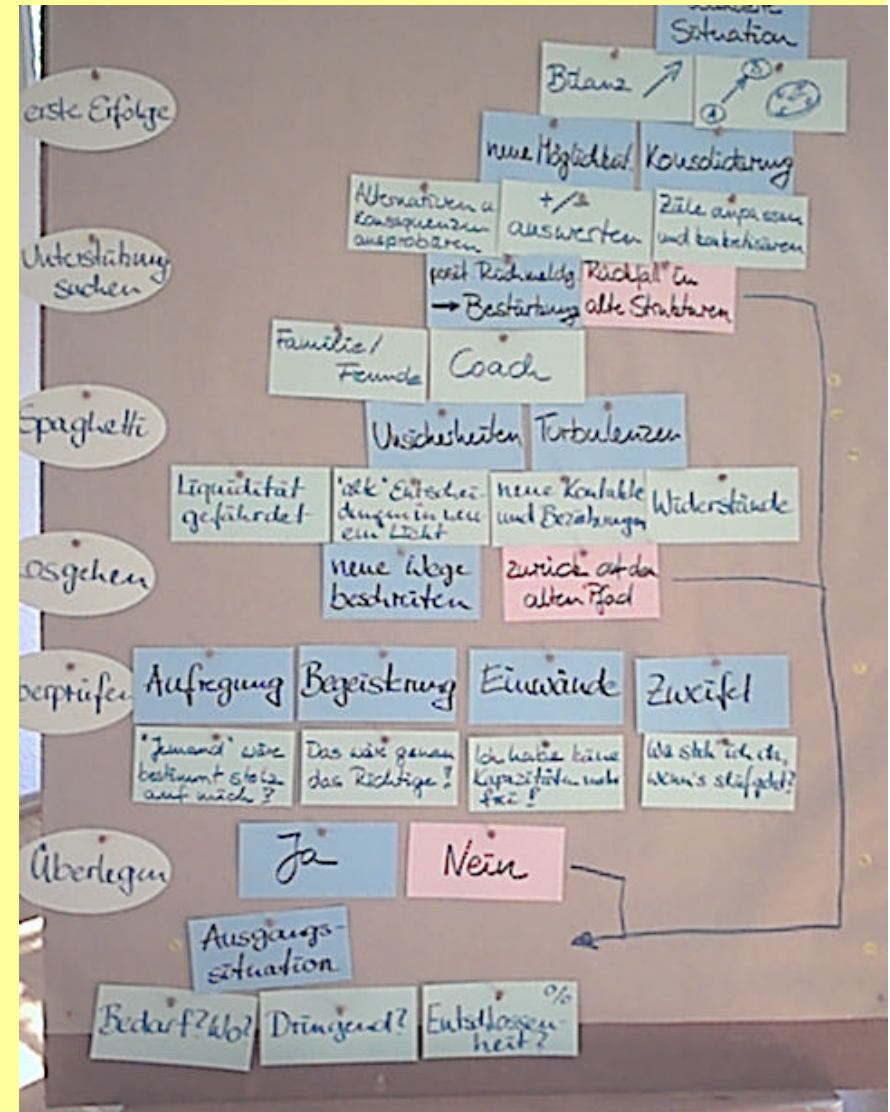 Situation
Bilanz
A
B
erste Erfolge
neue Möglichkeit.
Konsolidierung
Alternativen u
Konsequenzen
ausprobieren
+/-
auswerten
Ziele anpassen
und konkretisieren
Unterstützung
suchen
posit Rückmeldg.
→ Bestärkung
Rückfall in
alte Strukturen
Familie/
Freunde
Coach
Spaghetti
Unsicherheiten
Turbulenzen
Liquidität
gefährdet
"alte" Entschei-
dungen in neu
em Licht
neue Kontakte
und Beziehungen
Widerstände
Losgehen
neue Wege
beschreiten
zurück auf den
alten Pfad
berprüfen
Aufregung
Begeisterung
Einwände
Zweifel
"Jemand" wäre
bestimmt stolz
auf mich?
Das wär genau
das Richtige!
Ich habe keine
Kapazitäten mehr
frei!
Wie steh ich da,
wenn's schiefgeht?
Überlegen
Ja
Nein
Ausgangs-
situation
Bedarf? Wo?
Dringend?
%
Entschlossen-
heit?